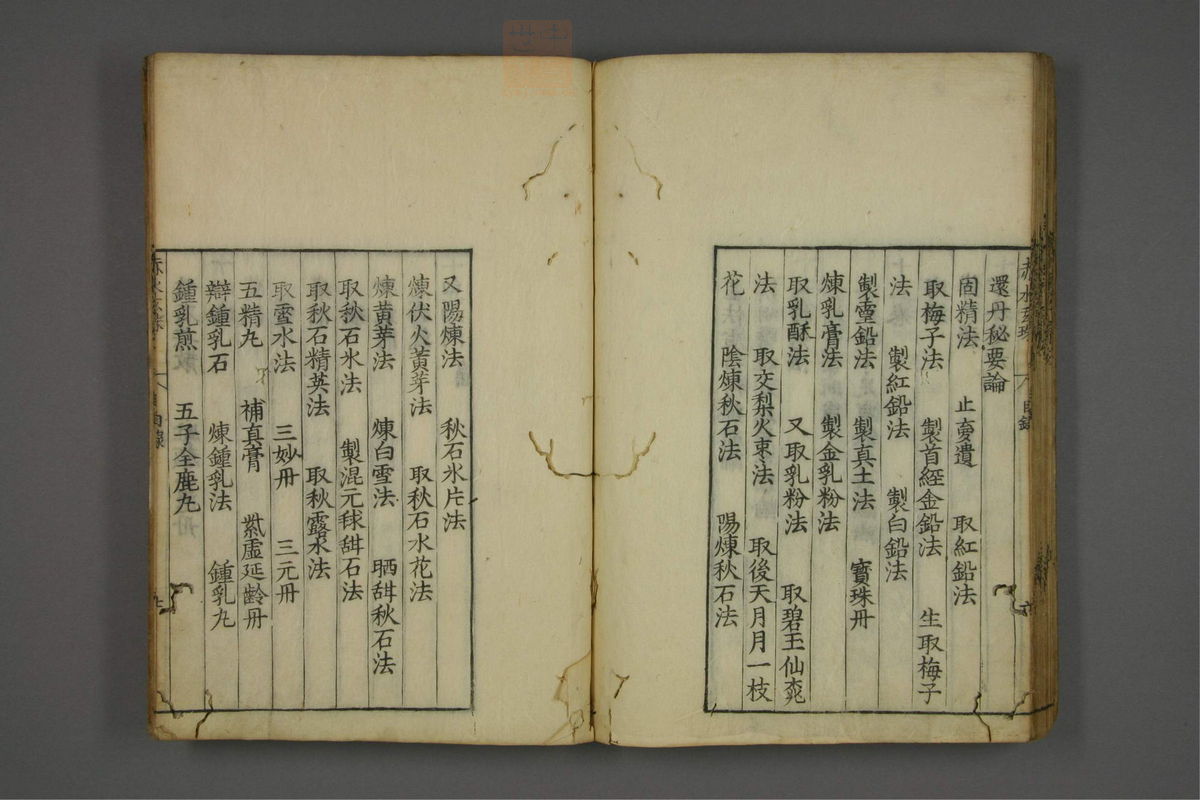 還丹秘要論
固精法　止夌遺　取紅鉛法
取梅子法　製首經金鉛法　生取梅子
法　製紅鉛法　製白鉛法
製靈鉛法　製真土法　寶珠丹
煉乳膏法　製金乳粉法
取乳酥法　又取乳粉法　取碧玉仙桃
法　取交梨火棗法　取後天月月一枝
花　陰煉秋石法　陽煉秋石法
又陽煉法　秋石氷片法
煉伏火黃芽法　取秋石水花法
煉黃芽法　煉白雪法　晒甜秋石法
取秋石氷法　製混元毬甜石法
取秋石精英法　取秋露水法
取雪水法　三妙丹　三元丹
五精丸　補真膏　紫虛延齡丹
辯鍾乳石　煉鍾乳法　鍾乳丸
鍾乳煎　五子全鹿丸